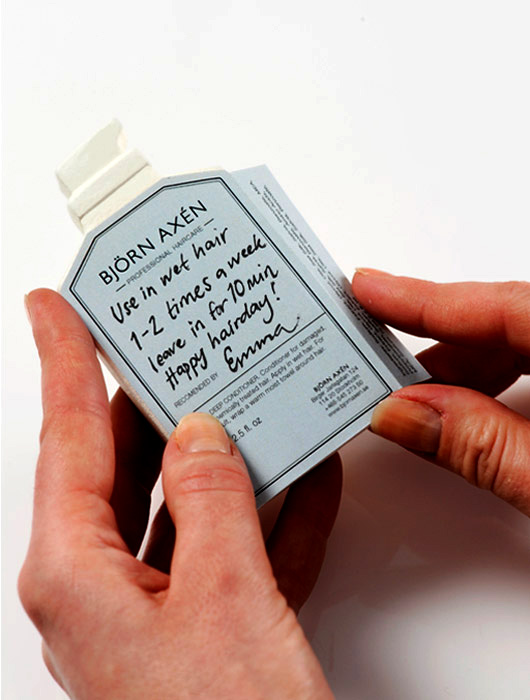 BJÖRN AXÉN
— PROFESSIONAL HAIRCARE —
Use in wet hair
1-2 times a week
leave in for 10 min
Happy hairday!
Emma
RECOMENDED BY
DEEP CONDITIONER. Conditioner for damaged,
chemically treated hair. Apply in wet hair. For
wrap a warm moist towel around hair.
2.5 fl. oz
BJÖRN AXÉN
Birger Jarlsgatan 124
114 20 Stockholm
www.bjornaxen.se